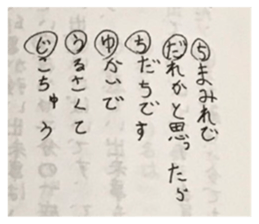 ちまみれで
だれかと思ったら
ちだちです
ゆかいで
うるさくて
じこちゅう